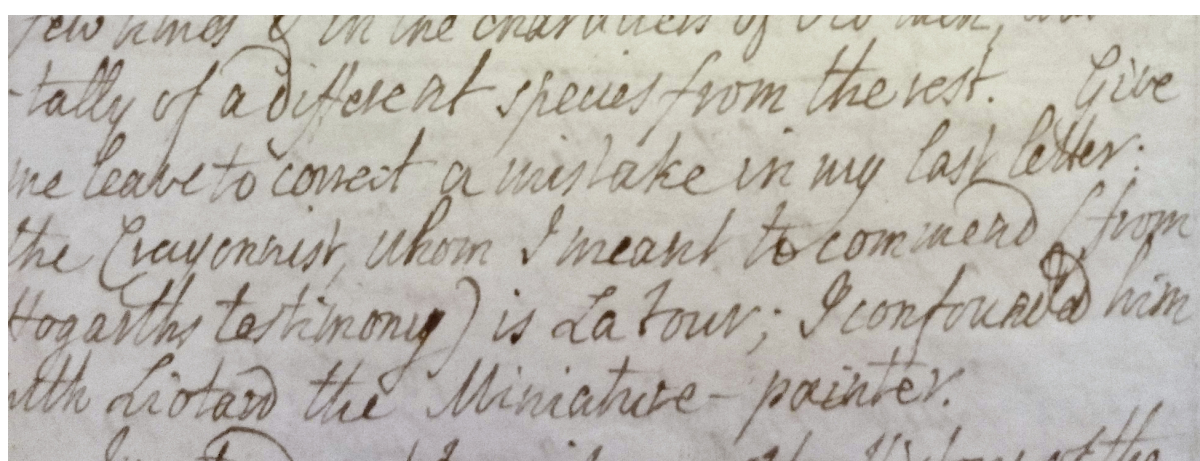 few times & in the characters of old men,
-tally of a different species from the rest. Give
me leave to correct a mistake in my last letter:
the Crayonnist, whom I meant to commend (from
Hogarths testimony) is La Tour; I confounded him
with Liotard the Miniature-painter.
the